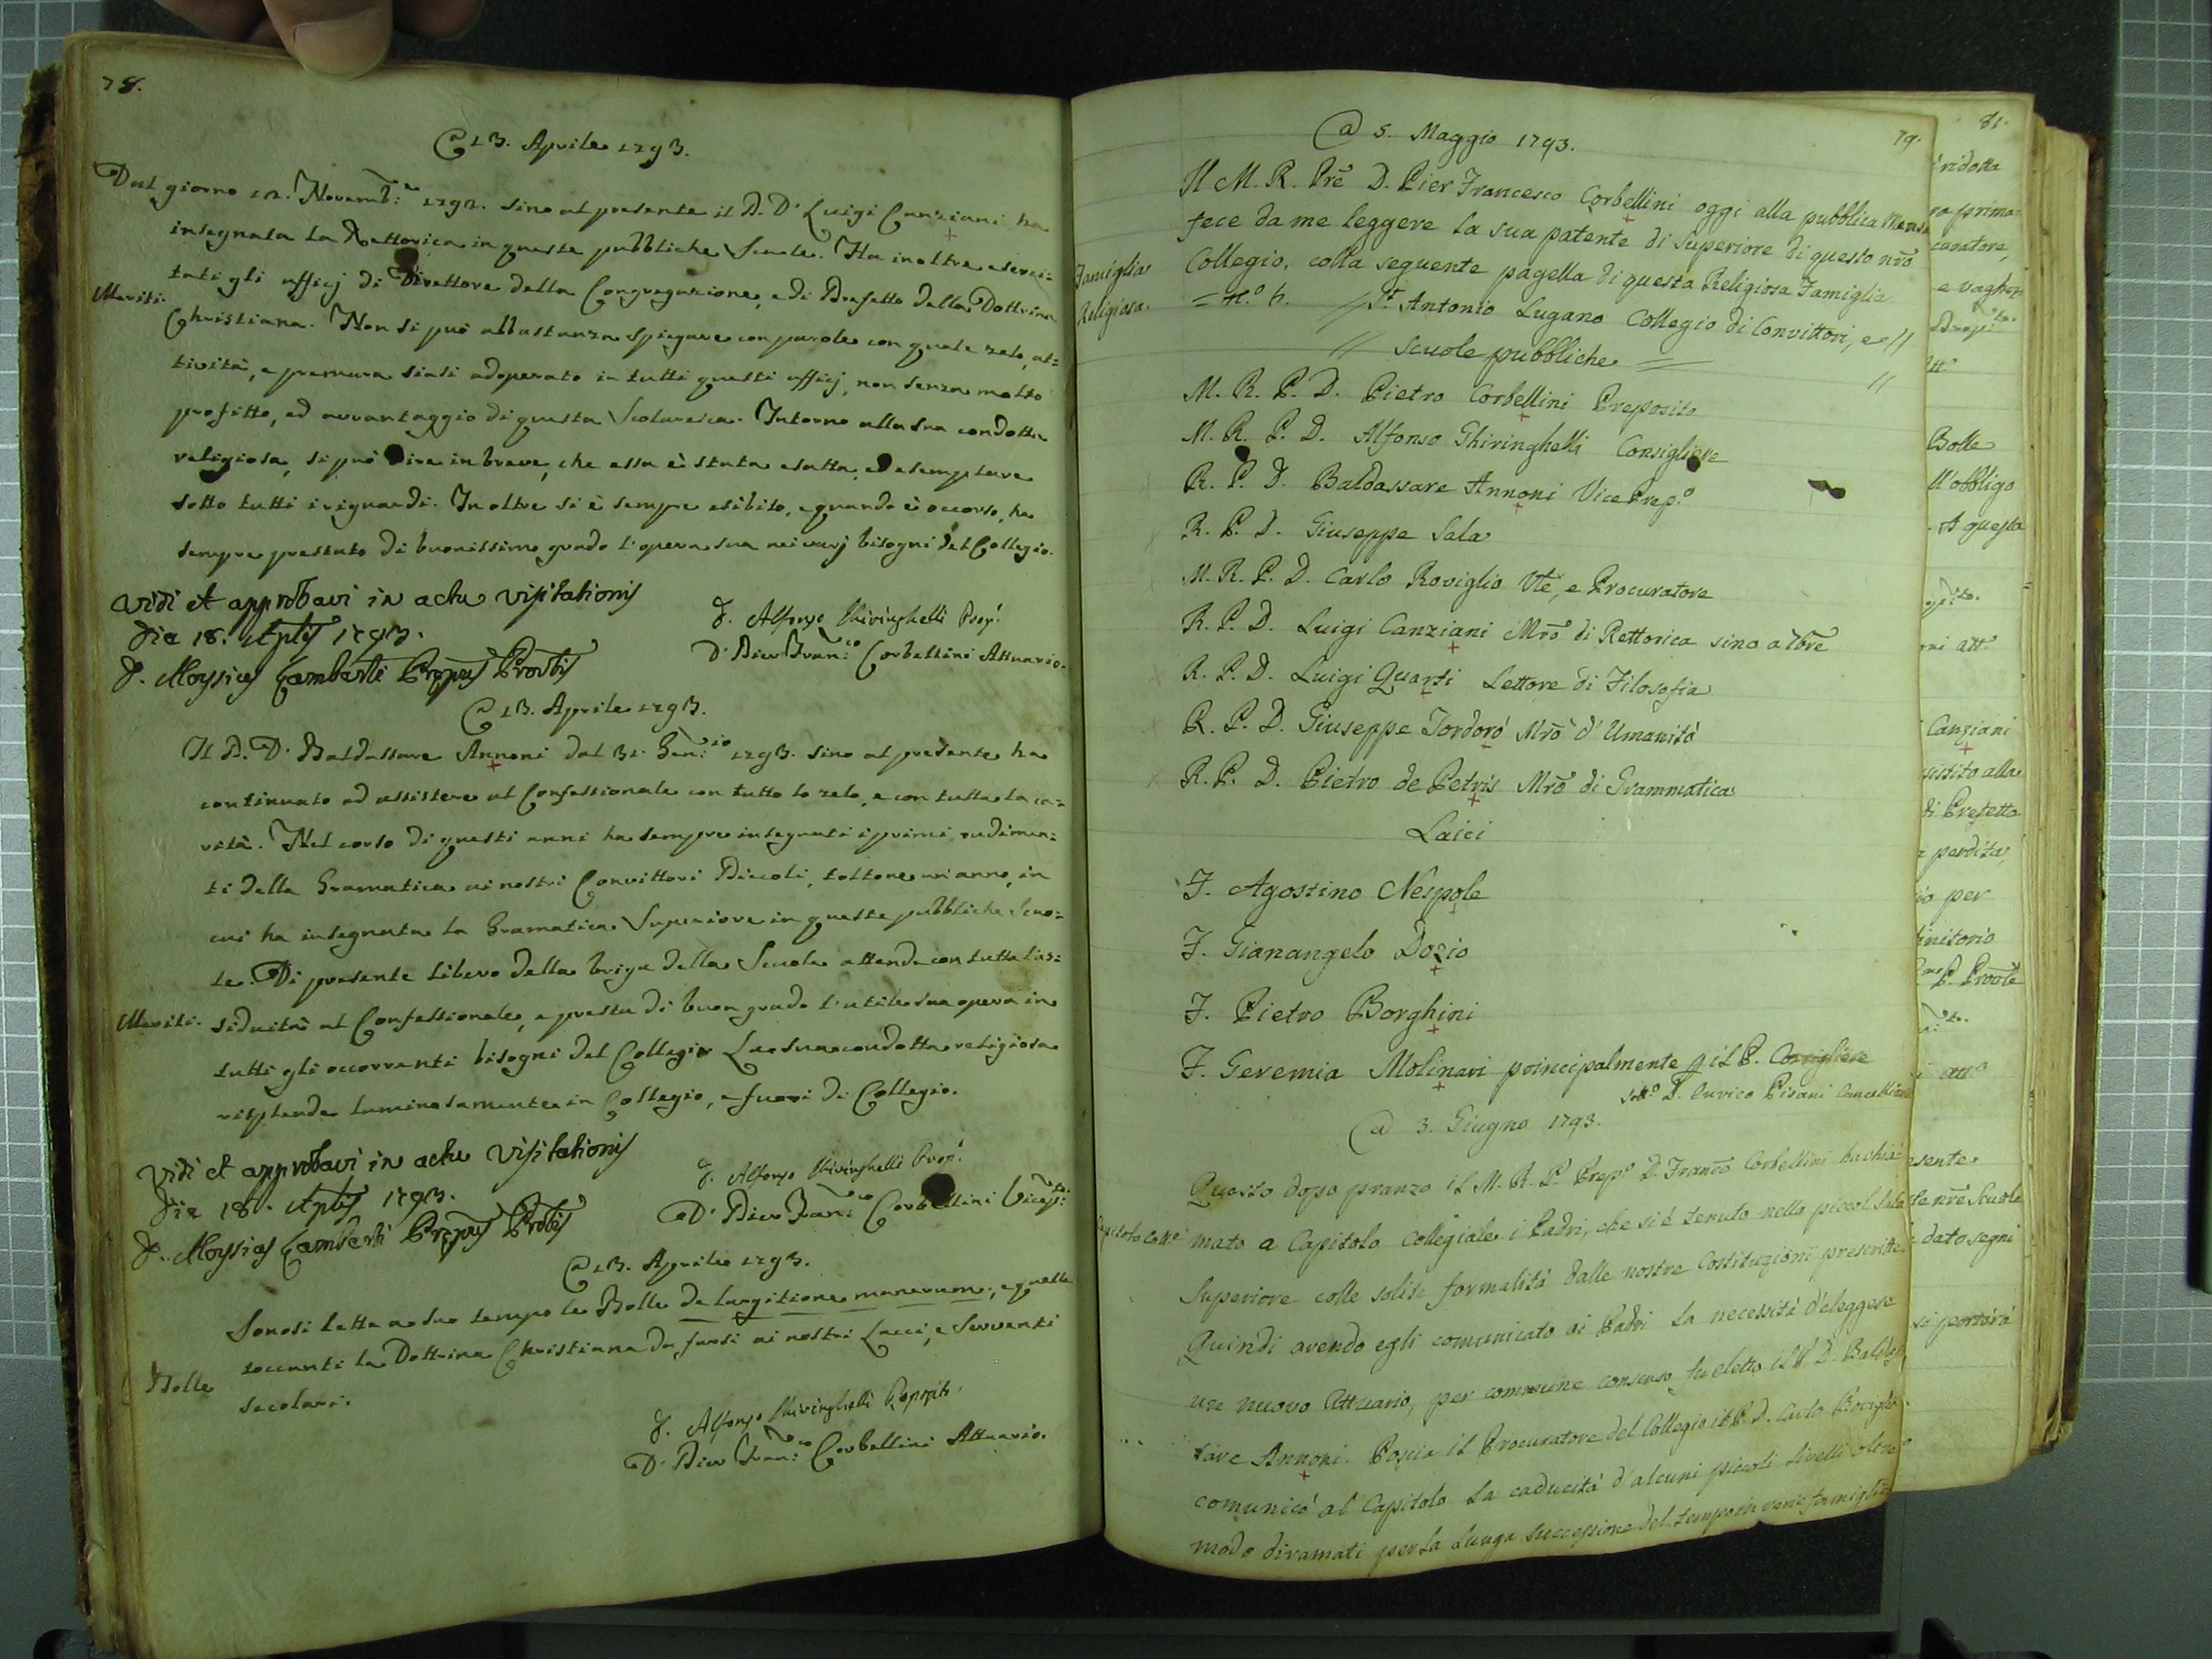 78.
@ 13. Aprile 1793.
Dal giorno 12. Novemb:e 1792. sino al presente il P. D. Luigi Canziani ha
insegnata la Rettorica in queste pubbliche Scuole. Ha inoltre eserci=
tati gli ufficj di Direttore della Congregazione, e di Prefetto della Dottrina
Meriti.
Christiana. Non si può abbastanza spiegare con parole con quale zelo, at=
tività, e premura siasi adoperato in tutti questi ufficj, non senza molto
profitto, ed avvantaggio di questa Scolaresca. Intorno alla sua condotta
religiosa, si può dire in breve, che essa è stata esatta, ed esemplare
sotto tutti i riguardi. In oltre si è sempre esibito, e quando è occorso, ha
sempre prestato di buonissimo grado l'opera sua nei varj bisogni del Collegio.
Vidi et approbavi in actu visitationis
die 18. Aplis 1793.
D. Aloysius Lamberti Prepus Provlis
D. Alfonso Ghiringhelli Prep.
D. Pier Fran:co Corbellini Attuario.
@ 13. Aprile 1793.
Il P. D. Baldassare Annoni dal 31. Gen:io 1793. sino al presente ha
continuato ad assistere al Confessionale con tutto lo zelo, e con tutta la ca=
rità. Nel corso di questi anni ha sempre insegnati i primi rudimen=
ti della Gramatica ai nostri Convittori Piccoli, toltone un anno, in
cui ha insegnata la Gramatica Superiore in queste pubbliche Scuo=
le. Di presente libero della briga della Scuola attende con tutta l'as=
Meriti.
siduità al Confessionale, e presta di buon grado l'utile sua opera in
tutti gli occorrenti bisogni del Collegio. La sua condotta religiosa
risplende luminosamente in Collegio, e fuori di Collegio.
Vidi et approbavi in actu visitationis
die 18. Aplis 1793.
D. Aloysius Lamberti Prepus Provlis
D. Alfonso Ghiringhelli Prep.
D. Pier Fran:co Corbellini Vicep:to
@ 13. Aprile 1793.
Sonosi lette a suo tempo le Bolle de largitione munerum, e quelle
toccanti la Dottrina Christiana da farsi ai nostri Laici, e Serventi
Bolle
secolari.
D. Alfonso Ghiringhelli Preposito.
D. Pier Fran:co Corbellini Attuario.
79.
@ 5. Maggio 1793.
Il M. R. Prē D. Pier Francesco Corbellini oggi alla pubblica Mensa
fece da me leggere la sua patente di Superiore di questo nrō
Famiglia
Religiosa.
Collegio, colla seguente pagella di questa Religiosa Famiglia
= N.o 6. // St Antonio Lugano Collegio di Convittori, e //
// scuole pubbliche = //
M. R. P. D. Pietro Corbellini Preposito
M. R. P. D. Alfonso Ghiringhelli Consigliere
R. P. D. Baldassare Annoni Vice Prep.o
R. P. D. Giuseppe Sala
M. R. P. D. Carlo Roviglio Vtē, e Procuratore
R. P. D. Luigi Canziani Mrō di Rettorica sino a 7brē
R. P. D. Luigi Quarti Lettore di Filosofia
R. P. D. Giuseppe Tordorò Mrō d'Umanità
R. P. D. Pietro de Petris Mrō di Grammatica
Laici
F. Agostino Nespole
F. Gianangelo Dozio
F. Pietro Borghini
F. Geremia Molinari principalmente p il P. Consigliere
sotto D. Enrico Pisani Cancelliere
@ 3. Giugno 1793.
Questo dopo pranzo il M. R. P. Prep.o D. Francō Corbellini ha chia=
Capitolo Colle
mato a Capitolo Collegiale i Padri, che si è tenuto nella piccol Sala
Superiore colle solite formalità dalle nostre Costituzioni prescritte
Quindi avendo egli comunicato ai Padri la necessità d'eleggere
un nuovo Attuario, per commune consenso fu eletto il P. D. Baldas=
sare Annoni. Poscia il Procuratore del Collegio il P. D. Carlo Roviglio
comunicò al Capitolo la caducità d'alcuni piccoli Livelli oltre
modo diramati per la lunga successione del tempo in varie famiglie
81.
ridotta
prima
e vaghez
Bolle
ll'obbligo
A questa
Canziani
sistito alla
di Prefetto
perdita
per
P. Provle
esente.
te nrē Scuole
dato segni
si porterà